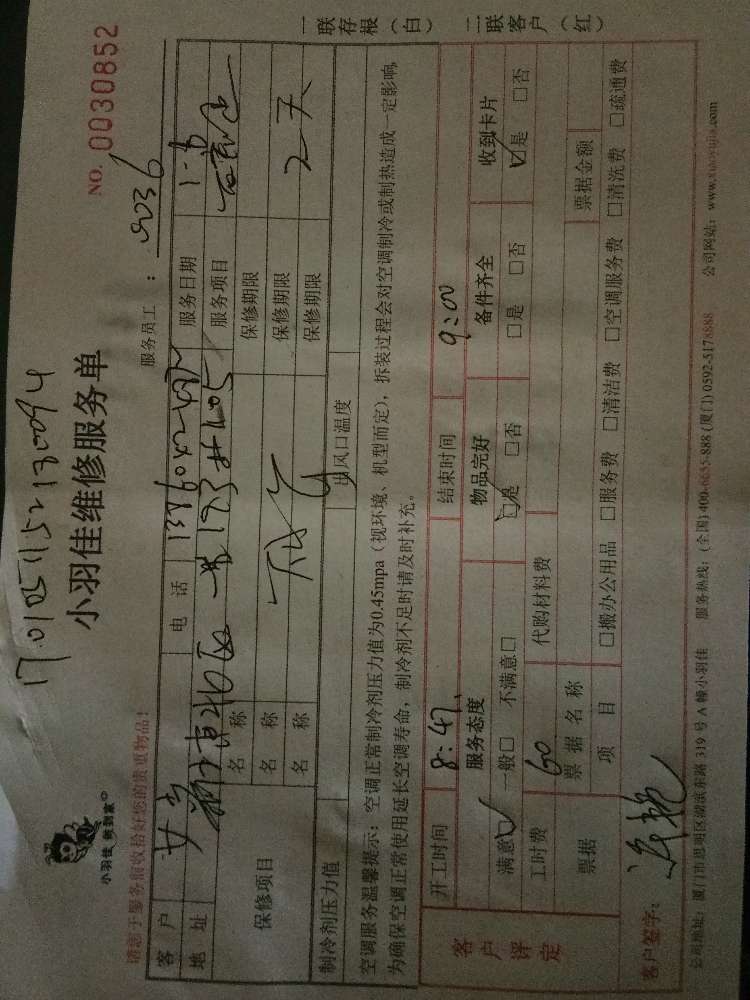 一联存根（白） 二联客户（红）
小羽佳 爽到家
小羽佳维修服务单
NO. 0030852
请您于服务前收拾好您的贵重物品！
服务员工：
客户 女士 电话 服务日期
地址 服务项目
保修项目 名称 保修期限
名称 保修期限 2天
名称 保修期限
制冷剂压力值 出风口温度
空调服务温馨提示：空调正常制冷剂压力值为0.45mpa（视环境、机型而定），拆装过程会对空调制冷或制热造成一定影响，
为确保空调正常使用延长空调寿命，制冷剂不足时请及时补充。
客户评定
开工时间 8:47 结束时间 9:00
服务态度 物品完好 备件齐全 收到卡片
满意□ 一般□ 不满意□ □是 □否 □是 □否 □是 □否
工时费 60 代购材料费
票据 票据名称 票据金额
项目 □搬办公用品 □服务费 □清洁费 □空调服务费 □清洗费 □疏通费
客户签字：
公司地址：厦门市思明区湖滨东路 319 号 A 幢小羽佳 服务热线：(全国) 400-6655-888 (厦门) 0592-5178888 公司网站：www.xiaoyujia.com